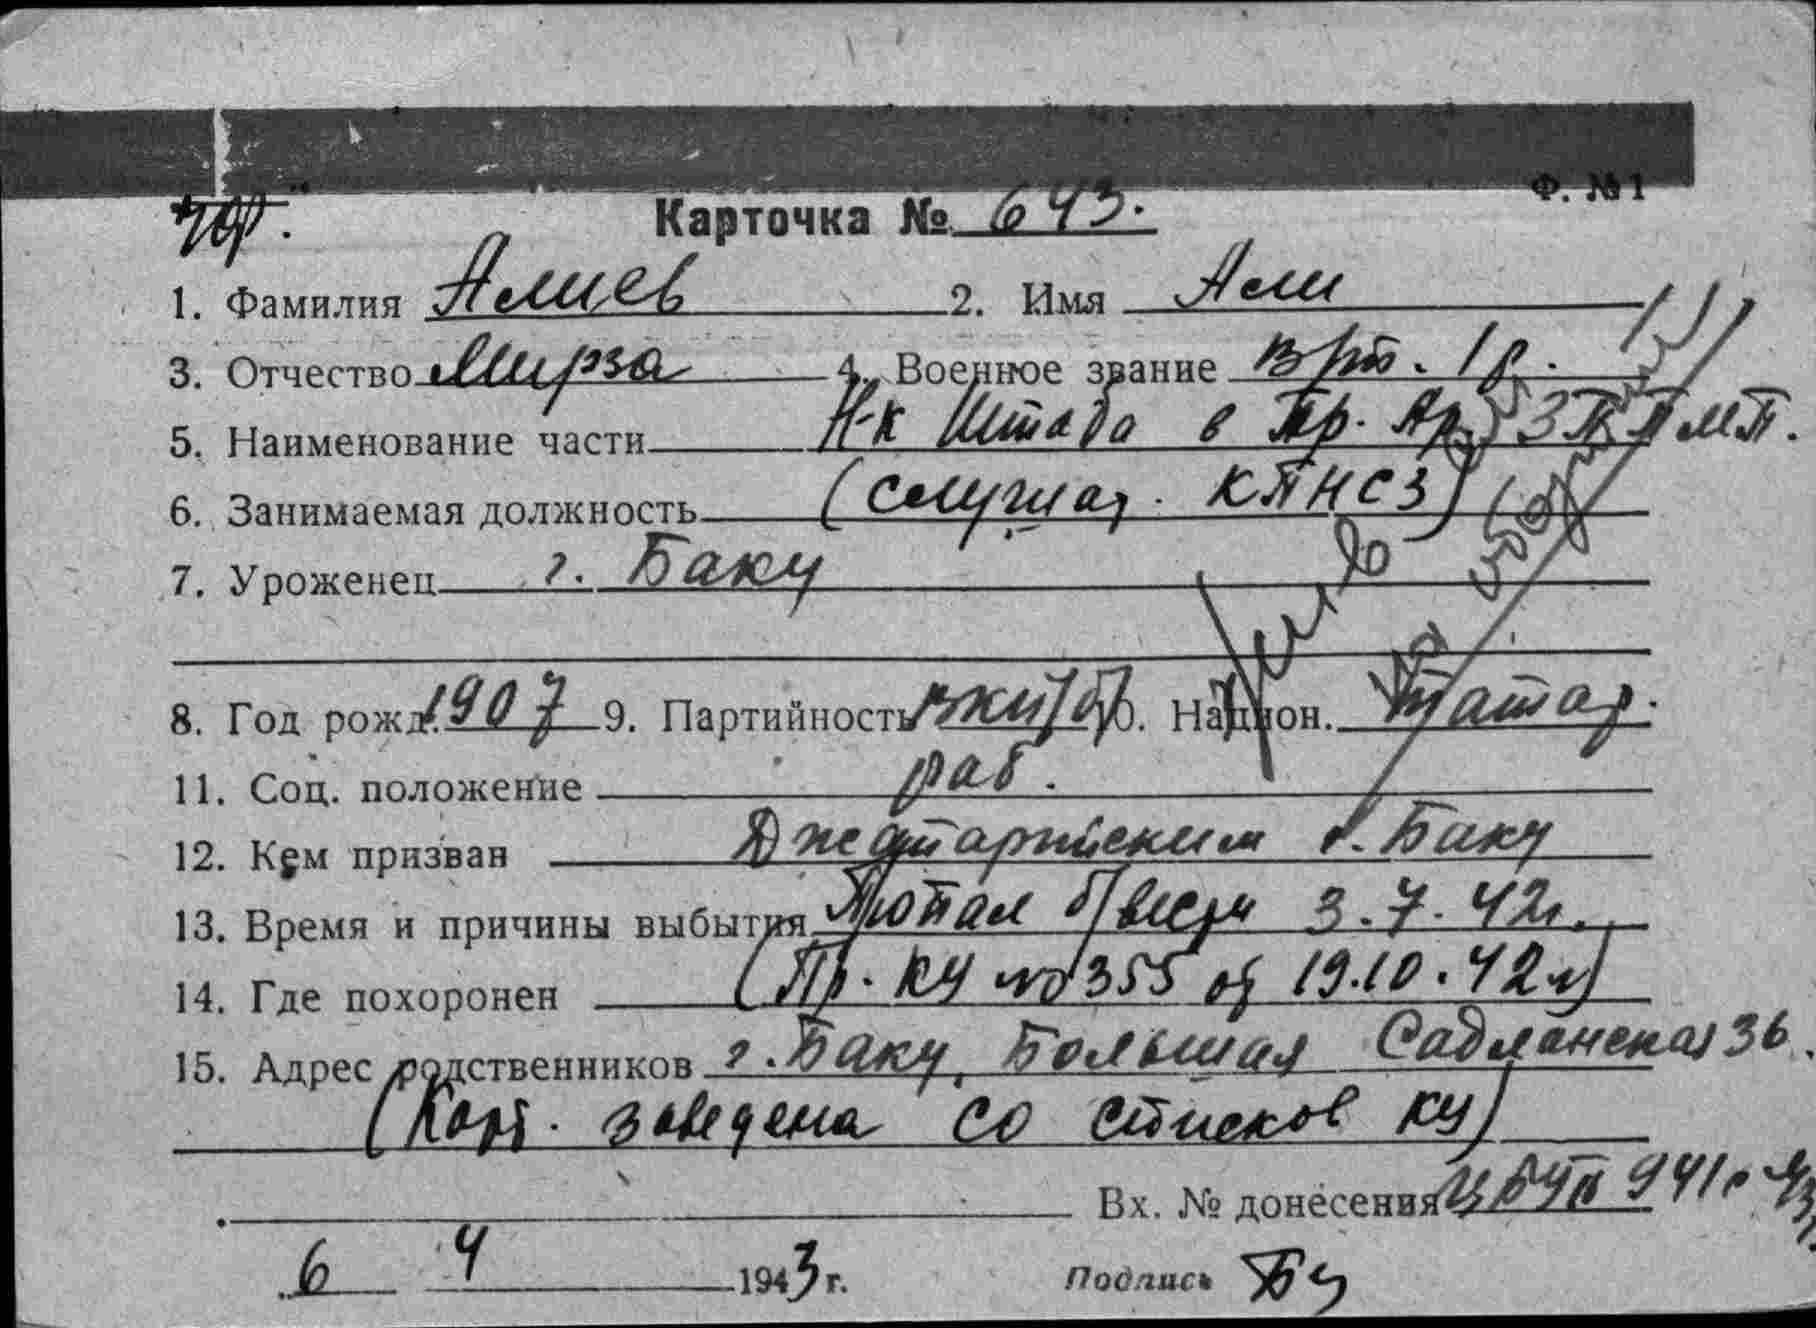 Ф. №1
Карточка № 643.
1. Фамилия Алиев 2. Имя Али
3. Отчество Мирза 4. Военное звание в/т. 1 р.
5. Наименование части Н-к Штаба в Пр. Ар.
6. Занимаемая должность (слушат. КПНСЗ)
7. Уроженец г. Баку
8. Год рожд. 1907 9. Партийность вкп/б/ 10. Национ. Татар.
11. Соц. положение раб.
12. Кем призван г. Баку
13. Время и причины выбытия Пропал б/вести 3.7.42г.
14. Где похоронен (Пр. КУ №355 от 19.10.42г)
15. Адрес родственников г. Баку, Большая 36.
(Карт. заведена со списков КУ)
Вх. № донесения 941с
6 4 1943 г. Подпись